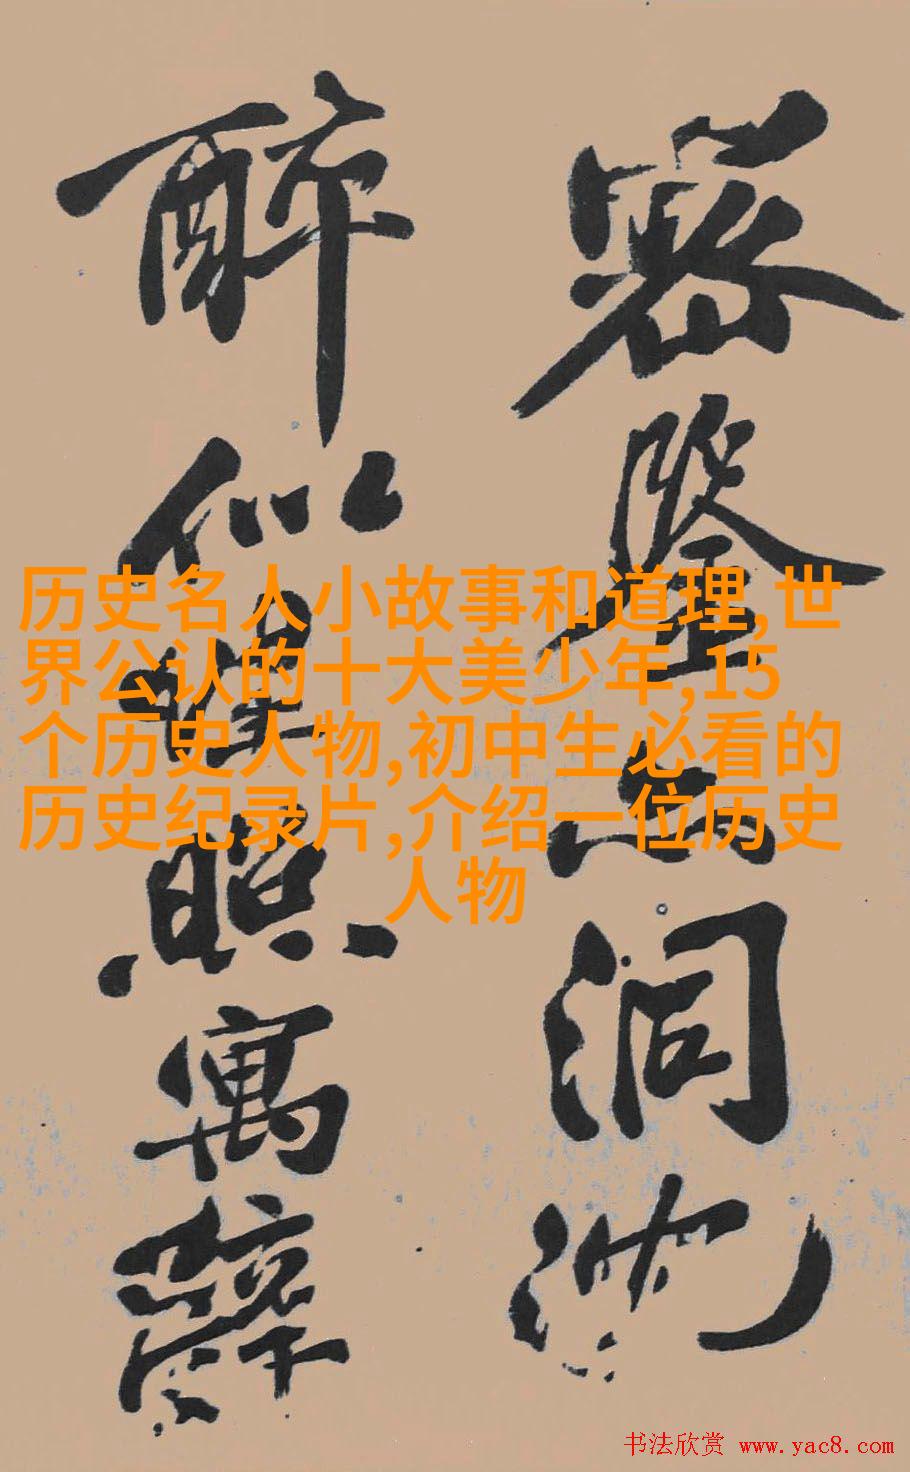 密鉴
洞沈
醉似
照寓辞
历史名人小故事和道理,世
界公认的十大美少年,15
个历史人物,初中生必看的
历史纪录片,介绍一位历史
人物
书法欣赏 www.yac8.com